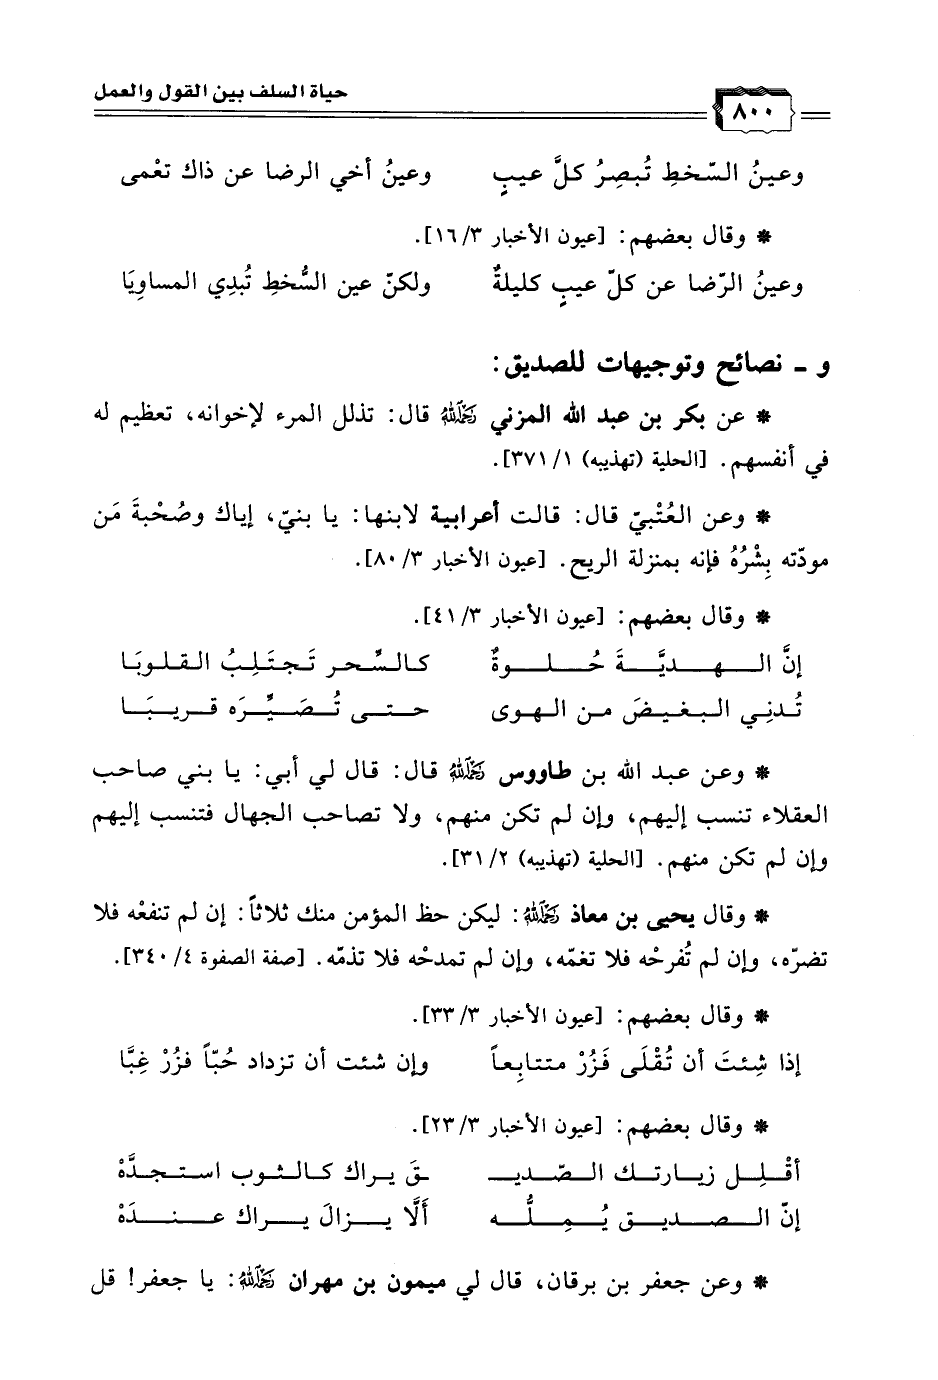 حياة السلف بين القول والعمل
٨٠٠
وعينُ السّخطِ تُبصِرُ كلَّ عيبٍ وعينُ أخي الرضا عن ذاك تعْمى
* وقال بعضهم: [عيون الأخبار ٣/ ١٦].
وعينُ الرّضا عن كلّ عيبٍ كليلةٌ ولكنّ عين السُّخطِ تُبدِي المساوِيَا
و ـ نصائح وتوجيهات للصديق:
* عن بكر بن عبد الله المزني رَحِمَهُ اللهُ قال: تذلل المرء لإخوانه، تعظيم له
في أنفسهم. [الحلية (تهذيبه) ١/ ٣٧١].
* وعن العُتْبيّ قال: قالت أعرابية لابنها: يا بنيّ، إياك وصُحْبةَ مَن
مودّته بِشْرُهُ فإنه بمنزلة الريح. [عيون الأخبار ٣/ ٨٠].
* وقال بعضهم: [عيون الأخبار ٣/ ٤١].
إنَّ الـهـديَّـةَ حُـلـوةٌ كـالسِّحـر تَـجـتَـلِـبُ الـقـلـوبَـا
تُـدنِـي الـبـغـيـضَ مـن الـهـوى حـتـى تُـصَـيِّـرَه قـريـبَـا
* وعن عبد الله بن طاووس رَحِمَهُ اللهُ قال: قال لي أبي: يا بني صاحب
العقلاء تنسب إليهم، وإن لم تكن منهم، ولا تصاحب الجهال فتنسب إليهم
وإن لم تكن منهم. [الحلية (تهذيبه) ٢/ ٣١].
* وقال يحيى بن معاذ رَحِمَهُ اللهُ: ليكن حظ المؤمن منك ثلاثاً: إن لم تنفعْه فلا
تضرّه، وإن لم تُفرحْه فلا تغمّه، وإن لم تمدحْه فلا تذمّه. [صفة الصفوة ٤/ ٣٤٠].
* وقال بعضهم: [عيون الأخبار ٣/ ٣٣].
إذا شِئتَ أن تُقْلَى فَزُرْ متتابِعاً وإن شئت أن تزداد حُبّاً فزُرْ غِبَّا
* وقال بعضهم: [عيون الأخبار ٣/ ٢٣].
أقْـلِـل زيـارتـك الـصّـديـ ـقَ يـراك كـالـثـوب اسـتـجـدَّهْ
إنّ الـصـديـق يُـمِـلُّـه أَلَّا يـزالَ يـراك عـنـدَهْ
* وعن جعفر بن برقان، قال لي ميمون بن مهران رَحِمَهُ اللهُ: يا جعفر! قل